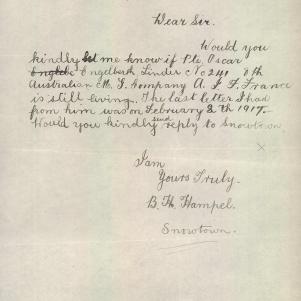 Dear Sir.
Would you
kindly let me know if Pte. Oscar
Engelberth Linder No 241 6th
Australian M. G. Company A. I. F. France
is still living. The last letter I had
from him was on February 8th 1917.
Would you kindly send reply to Snowtown
I am
Yours Truly.
B. H. Hampel.
Snowtown.